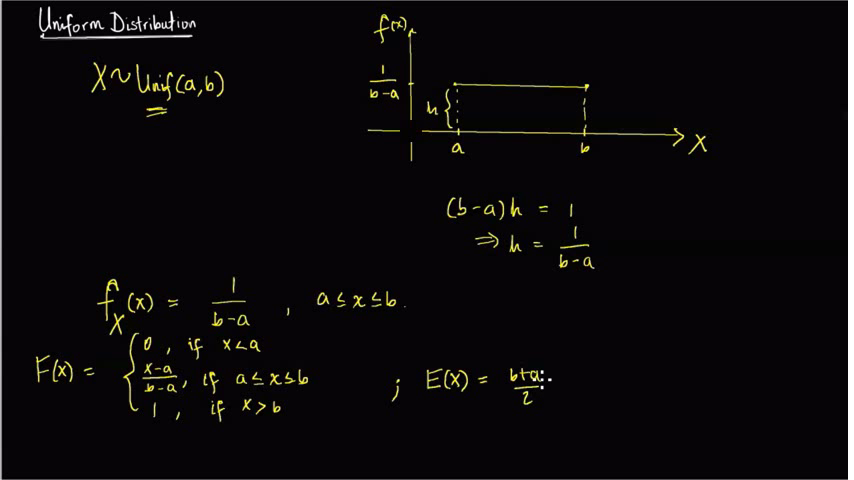 Uniform Distribution
X ~ Unif(a,b)
f(x)
1/(b-a)
h {
a b X
(b-a)h = 1
⇒ h = 1/(b-a)
f_X(x) = 1/(b-a) , a ≤ x ≤ b.
F(x) = { 0 , if x < a
(x-a)/(b-a) , if a ≤ x ≤ b
1 , if x > b
; E(X) = (b+a)/2